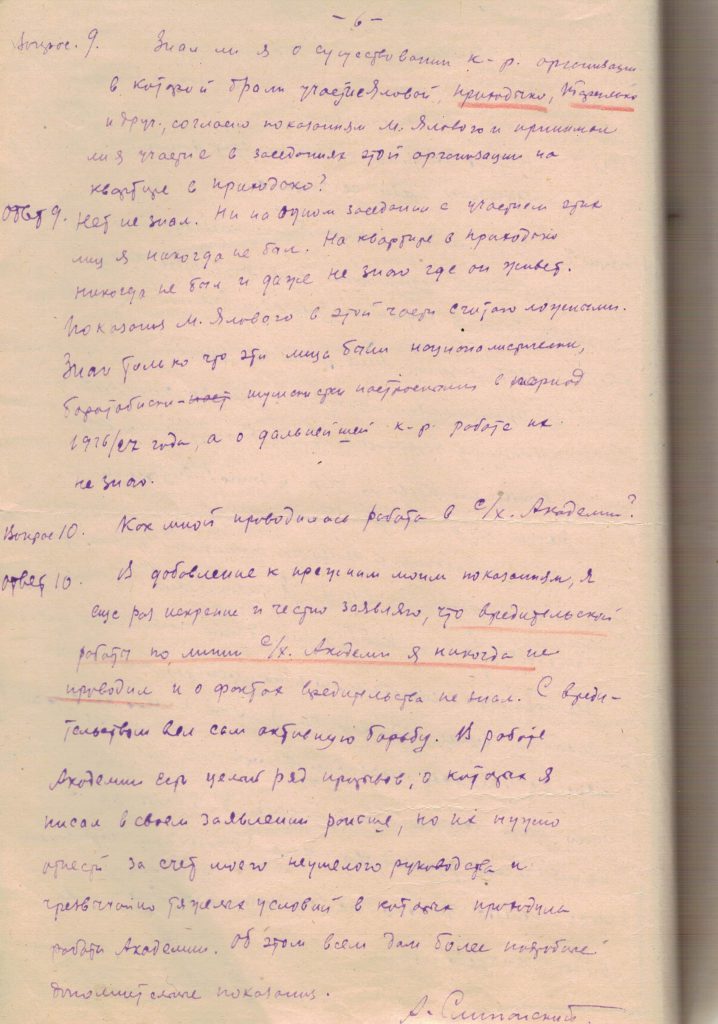 - 6 -
Вопрос. 9. Знал ли я о существовании к-р. организации
в которой брали участие Яловой, Приходько,
и друг., согласно показаниям М. Ялового и принимал
ли я участие в заседаниях этой организации на
квартире в Приходько?
Ответ 9. Нет не знал. Ни на одном заседании с участием этих
лиц я никогда не был. На квартире в Приходько
никогда не был и даже не знаю где он живет.
Показания М. Ялового в этой части считаю ложными.
Знал только что эти лица были националистически,
боротьбистски- шумскистки настроенными в период
1926/27 года, а о дальнейшей к-р. работе их
не знаю.
Вопрос 10. Как мной проводилась работа в с/х. Академии?
Ответ 10. В добавление к прежним моим показаниям, я
еще раз искренне и честно заявляю, что вредительской
работы по линии с/х. Академии я никогда не
проводил и о фактах вредительства не знал. С вреди-
тельством вел сам активную борьбу. В работе
Академии есть целый ряд прорывов, о которых я
писал в своем заявлении раньше, но их нужно
отнести за счет моего неумелого руководства и
чрезвычайно тяжелых условий в которых проходила
работа Академии. Об этом всем дам более подробные
дополнительные показания.
А. Слипанский.